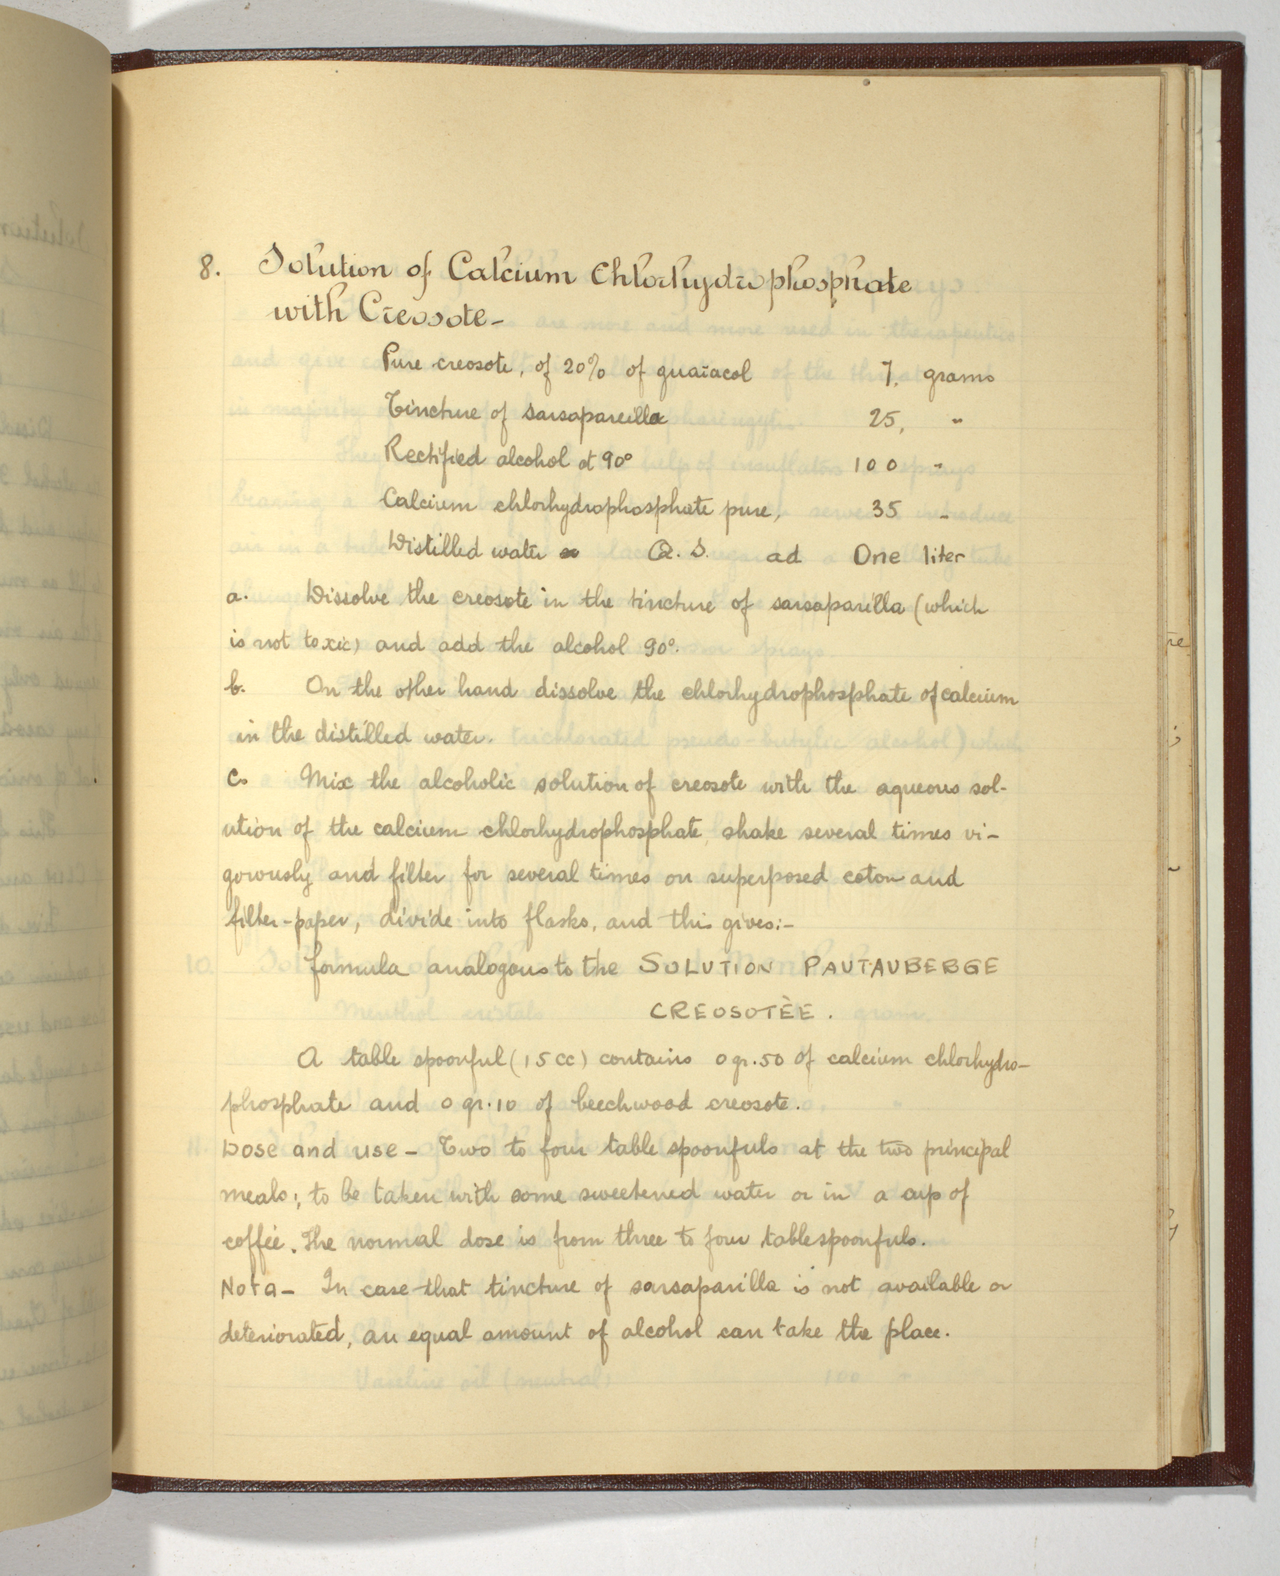 8. Solution of Calcium Chlorhydrophosphate
with Creosote -
Pure creosote, of 20% of guaïacol 7, grams
Tincture of sarsapareilla 25, "
Rectified alcohol at 90° 100 "
Calcium chlorhydrophosphate pure, 35 "
Distilled water Q. S. ad One liter
a. Dissolve the creosote in the tincture of sarsaparilla (which
is not toxic) and add the alcohol 90°.
b. On the other hand dissolve the chlorhydrophosphate of calcium
in the distilled water.
c. Mix the alcoholic solution of creosote with the aqueous sol-
ution of the calcium chlorhydrophosphate, shake several times vi-
gorously and filter for several times on superposed coton and
filter-paper, divide into flasks, and this gives:-
formula analogous to the SOLUTION PAUTAUBERGE
CREOSOTÈE.
A table spoonful (15 cc) contains 0 gr.50 of calcium chlorhydro-
phosphate and 0 gr.10 of beechwood creosote.
Dose and use - Two to four table spoonfuls at the two principal
meals; to be taken with some sweetened water or in a cup of
coffee. The normal dose is from three to four tablespoonfuls.
Nota - In case that tincture of sarsaparilla is not available or
deteriorated, an equal amount of alcohol can take the place.